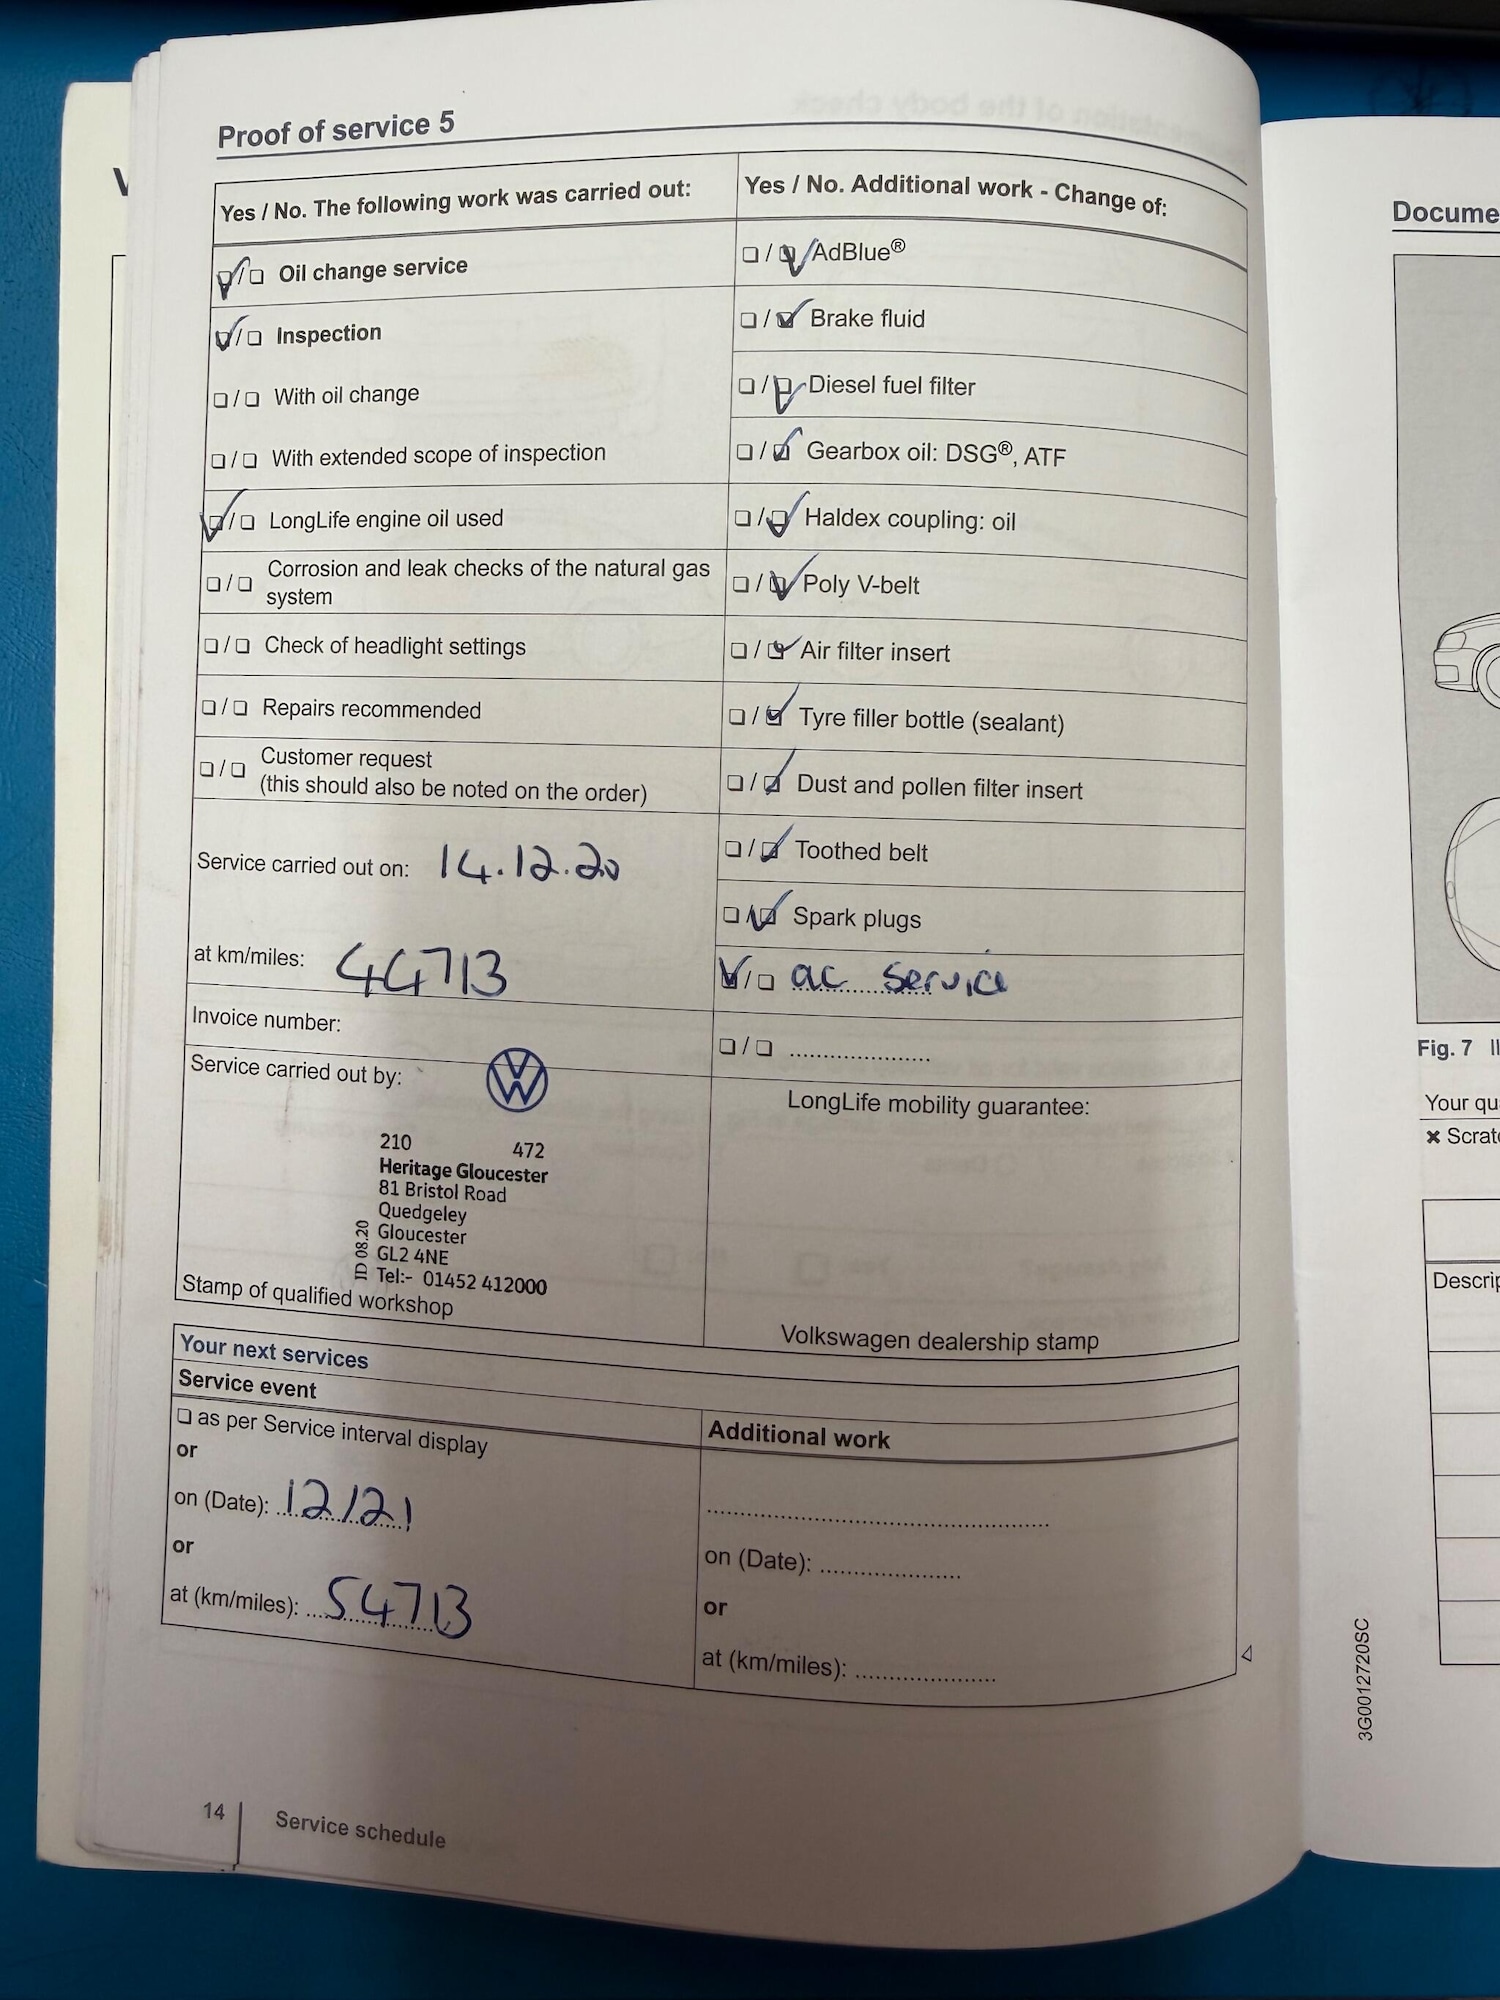 Proof of service 5
Yes / No. The following work was carried out:
Oil change service
Inspection
With oil change
With extended scope of inspection
LongLife engine oil used
Corrosion and leak checks of the natural gas
system
Check of headlight settings
Repairs recommended
Customer request
(this should also be noted on the order)
Service carried out on: 14.12.20
at km/miles: 44713
Invoice number:
Service carried out by:
210 472
Heritage Gloucester
81 Bristol Road
Quedgeley
Gloucester
GL2 4NE
Tel:- 01452 412000
ID 08.20
Stamp of qualified workshop
Yes / No. Additional work - Change of:
AdBlue®
Brake fluid
Diesel fuel filter
Gearbox oil: DSG®, ATF
Haldex coupling: oil
Poly V-belt
Air filter insert
Tyre filler bottle (sealant)
Dust and pollen filter insert
Toothed belt
Spark plugs
ac service
LongLife mobility guarantee:
Volkswagen dealership stamp
Your next services
Service event
as per Service interval display
or
on (Date): 12/21
or
at (km/miles): 54713
Additional work
on (Date):
or
at (km/miles):
14 Service schedule
Docume
Fig. 7
Your qu
× Scratc
Descrip
3G0012720SC